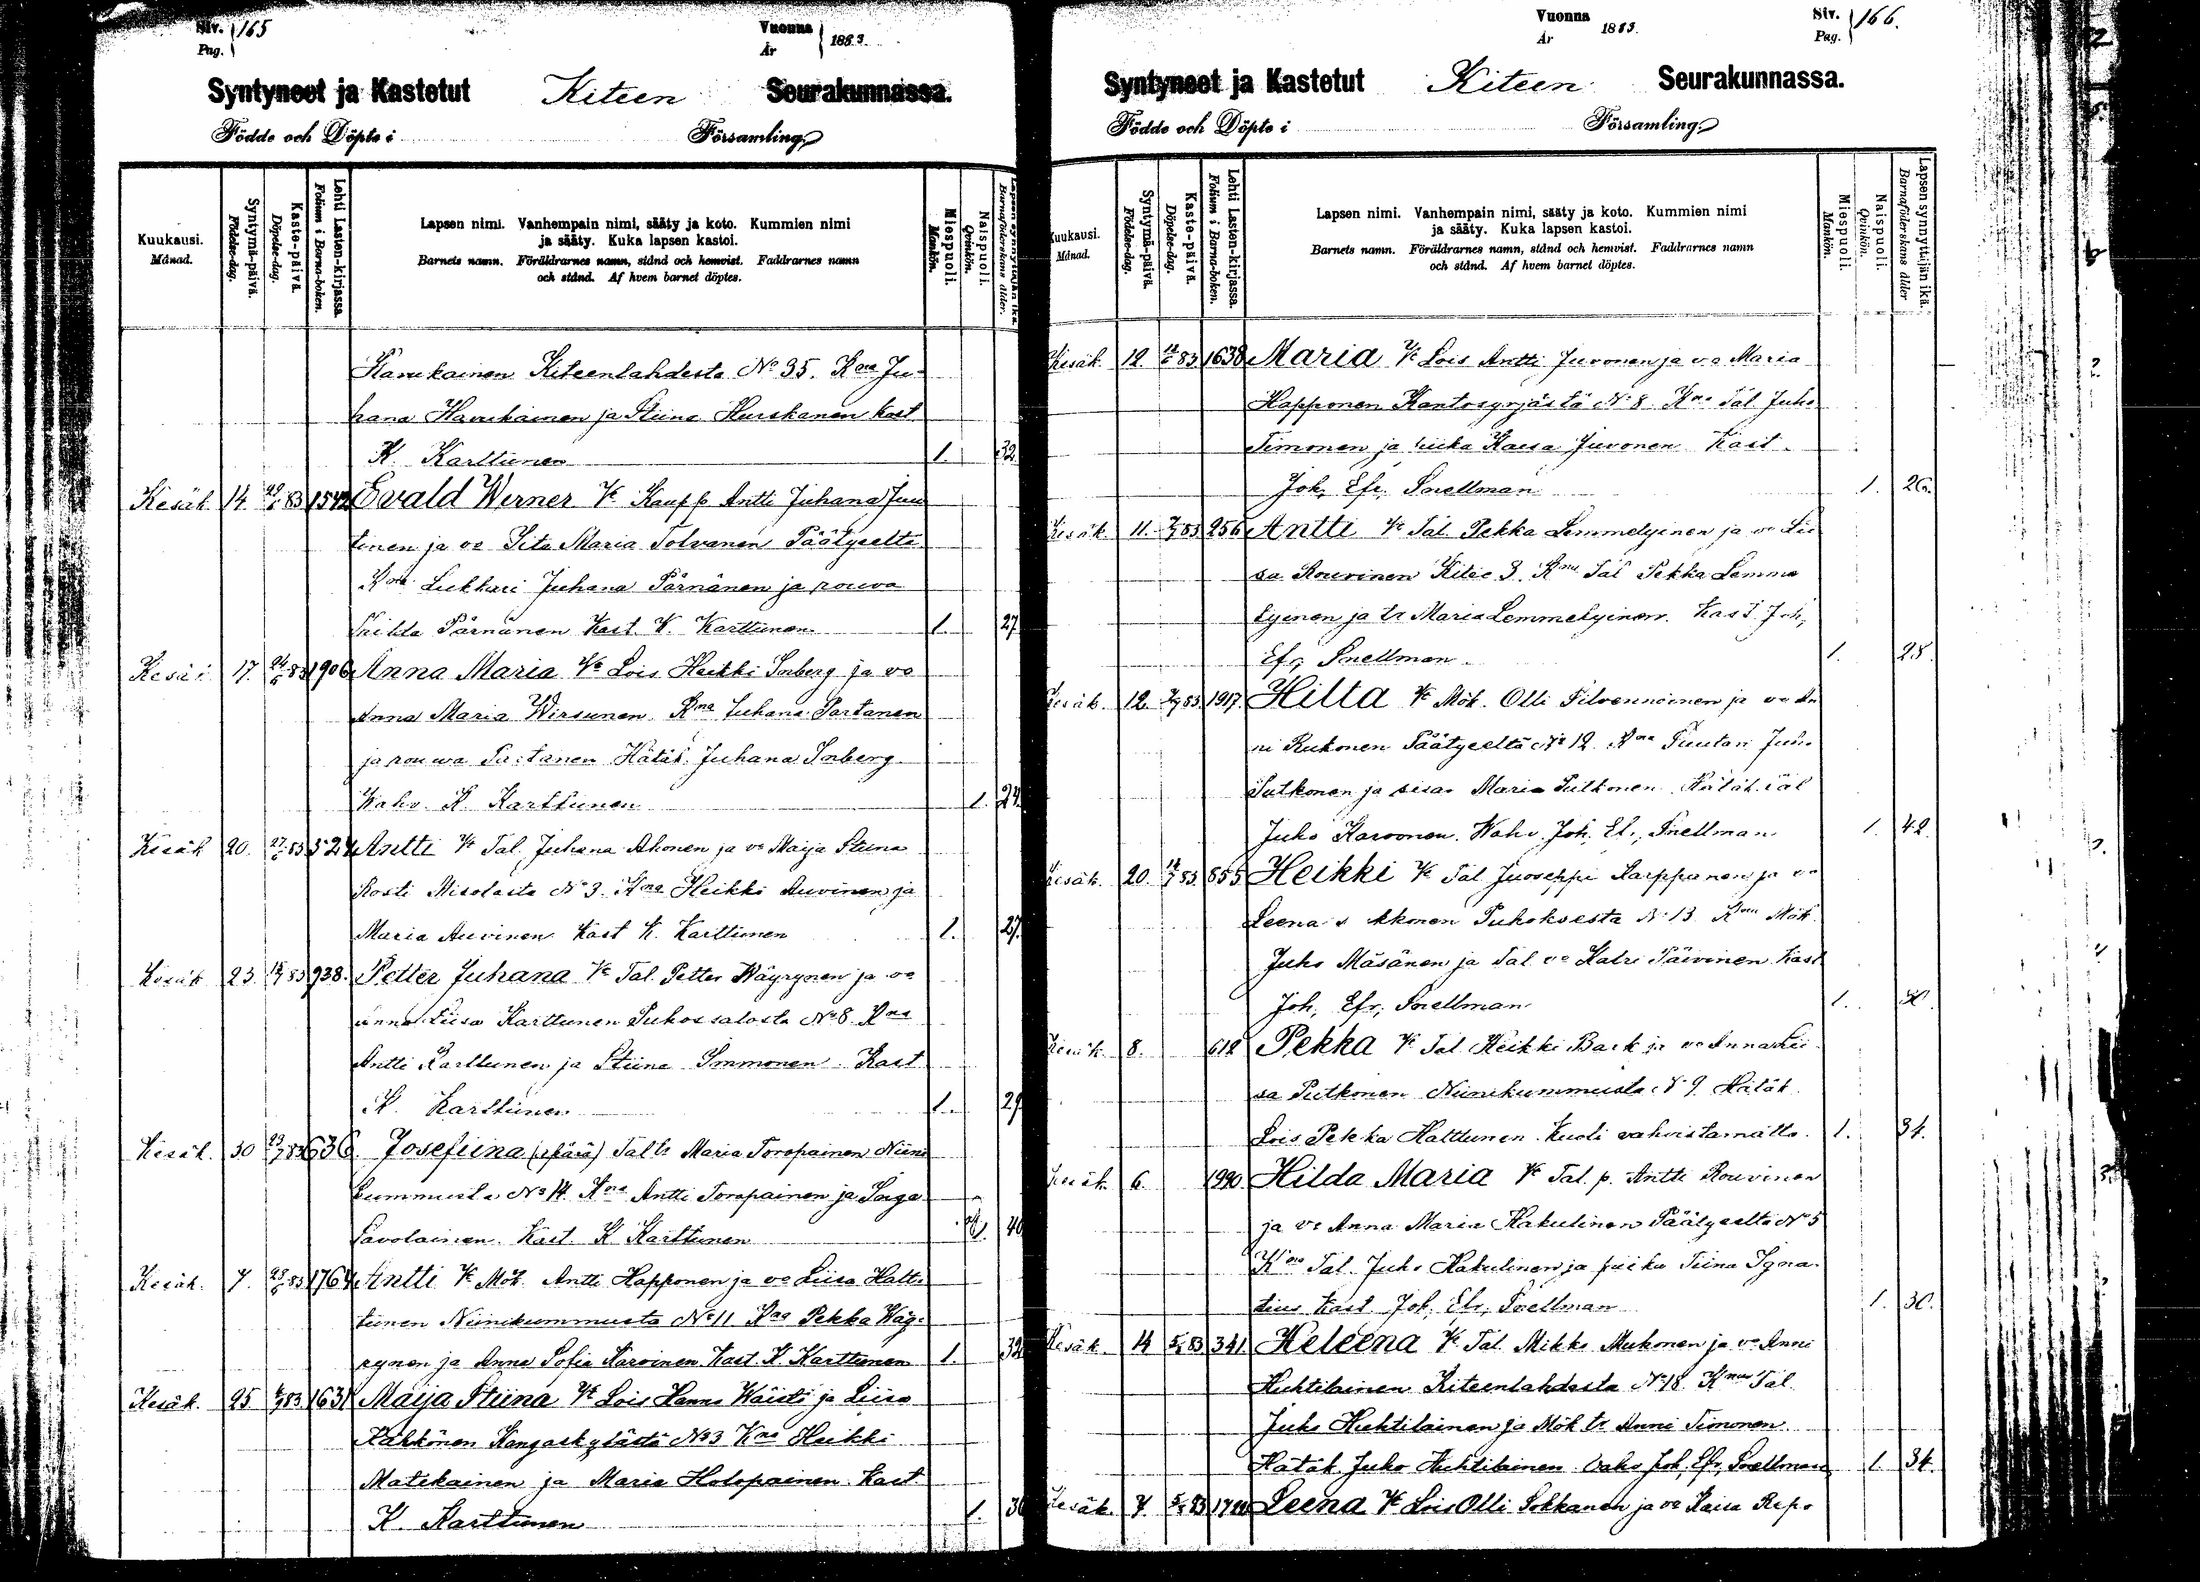 Siv. 165
Pag.
Vuonna 1883.
År
Syntyneet ja Kastetut Kiteen Seurakunnassa.
Födde och Döpte i Församling.
Kuukausi.
Månad.
Syntymä-päivä.
Födelse-dag.
Kaste-päivä.
Döpelse-dag.
Lehti Lasten-kirjassa.
Folium i Barna-boken.
Lapsen nimi. Vanhempain nimi, sääty ja koto. Kummien nimi
ja sääty. Kuka lapsen kastoi.
Barnets namn. Föräldrarnes namn, stånd och hemvist. Faddrarnes namn
och stånd. Af hvem barnet döptes.
Miespuoli.
Mankön.
Naispuoli.
Qvinkön.
Lapsen synnyttäjän ikä.
Barnaföderskans ålder.
Kiteenlahdesta No 35. Kna Ju-
hana Haukainen ja Stiina Hurskanen Kast
K. Karttunen 1. 32
Kesäk. 14. 83 1542 Evald Werner Vt Kaupp. Antti Juhana Juu
tinen ja vo Maria Tolvanen Päätyeeltä
Kna Lukkari Juhana Pärnänen ja rouva
Hilda Pärnänen Kast. K. Karttunen 1. 27
17. 24/6 83 1906 Anna Maria Vt Lois Heikki Sorberg ja vo
Anna Maria Wirsunen Kna Juhana Partanen
ja rouwa Partanen Hätäk. Juhana Sorberg
Wahv. K. Karttunen 1. 24
Kesäk 20. 27/6 83 524 Antti Vt Tal. Juhana Ahonen ja vo Maija Stiina
Kosti No 3. Kna Heikki Auvinen ja
Maria Auvinen Kast K. Karttunen 1. 27.
Kesäk 23. 83 938. Petter Juhana Vt Tal. Petter Wäyrynen ja vo
Anna Liisa Karttunen Puhossalosta No 8 Kna
Antti Karttunen ja Stiina Immonen Kast
K. Karttunen 1. 29
Kesäk. 30 83 636 Josefiina (äpärä) Tal tr Maria Toropainen Niini
kummusta No 14. Kna Antti Toropainen ja
Savolainen. Kast. K Karttunen 1. 40
Kesäk. 7. 83 1764 Antti Vt Mök. Antti Happonen ja vo Liisa Halt-
tunen Niinikummusta No 11 Kna Pekka Wäy-
rynen ja Anna Sofia Karvinen Kast. K Karttunen 1. 32
Kesäk. 25 83 1631 Maija Stiina Vt Lois Hannu Wäistö ja Liisa
Kähkönen Kangaskylästä No 3 Kna Heikki
Matikainen ja Maria Holopainen. Kast.
K. Karttunen 1. 36
Vuonna 1883.
År
Siv. 166.
Pag.
Syntyneet ja Kastetut Kiteen Seurakunnassa.
Födde och Döpte i Församling.
Kuukausi.
Månad.
Syntymä-päivä.
Födelse-dag.
Kaste-päivä.
Döpelse-dag.
Lehti Lasten-kirjassa.
Folium i Barna-boken.
Lapsen nimi. Vanhempain nimi, sääty ja koto. Kummien nimi
ja sääty. Kuka lapsen kastoi.
Barnets namn. Föräldrarnes namn, stånd och hemvist. Faddrarnes namn
och stånd. Af hvem barnet döptes.
Miespuoli.
Mankön.
Naispuoli.
Qvinkön.
Lapsen synnyttäjän ikä.
Barnaföderskans ålder
Kesäk. 12. 83 1638 Maria Vt Lois Antti Juvonen ja vo Maria
Happonen Kantosyrjästä No 8 Kna Tal. Juho
Timonen ja Kaisa Juvonen Kast.
Joh, Efr, Snellman 1. 26.
Kesäk. 11. 83 256 Antti Vt Tal. Pekka Lemmetyinen ja vo Lii
sa Rouvinen Kitee 3. Kna Tal Pekka Lemme
tyinen ja tr Maria Lemmetyinen. Kast. Joh,
Efr, Snellman 1. 28.
Kesäk. 12. 83. 1917. Hilta Vt Mök. Olli Silvennoinen ja vo An
ni Kukonen Päätyeeltä No 12. Kna Juho
Putkonen ja sisar Maria Putkonen. Hätäk. Tal
Juho Karvonen. Wahv. Joh, Efr, Snellman 1. 42.
Kesäk. 20. 83. 855 Heikki Vt Tal Juoseppi Karppanen ja vo
Leena Puhoksesta No 13. Kna Mök.
Juho Mäsänen ja Tal vo Katri Päivinen Kast
Joh, Efr, Snellman 1.
Kesäk. 8. 612 Pekka Vt Tal. Heikki Back ja vo Anna Lii-
sa Putkonen Niinikummusta No 9. Hätäk.
Lois Pekka Halttunen. Kuoli vahvistamatta. 1. 34.
Kesäk. 6. 1990. Hilda Maria Vt Tal. p. Antti Rouvinen
ja vo Anna Maria Kakulinen Päätyeeltä No 5
Kna Tal. Juho Kakulinen ja piika Tiina Igna-
tius Kast Joh, Efr, Snellman 1. 30.
Kesäk. 14 83 341 Heleena Vt Tal. Mikko Mukonen ja vo Anni
Huhtilainen Kiteenlahdesta No 18. Kna Tal.
Juho Huhtilainen ja Mök tr Anni Timonen.
Hätäk. Juho Huhtilainen. Vahv Joh. Efr, Snellman 1. 34.
Kesäk. 7. 83 Leena Vt Lois Olli Sokkanen ja vo Kaisa Repo